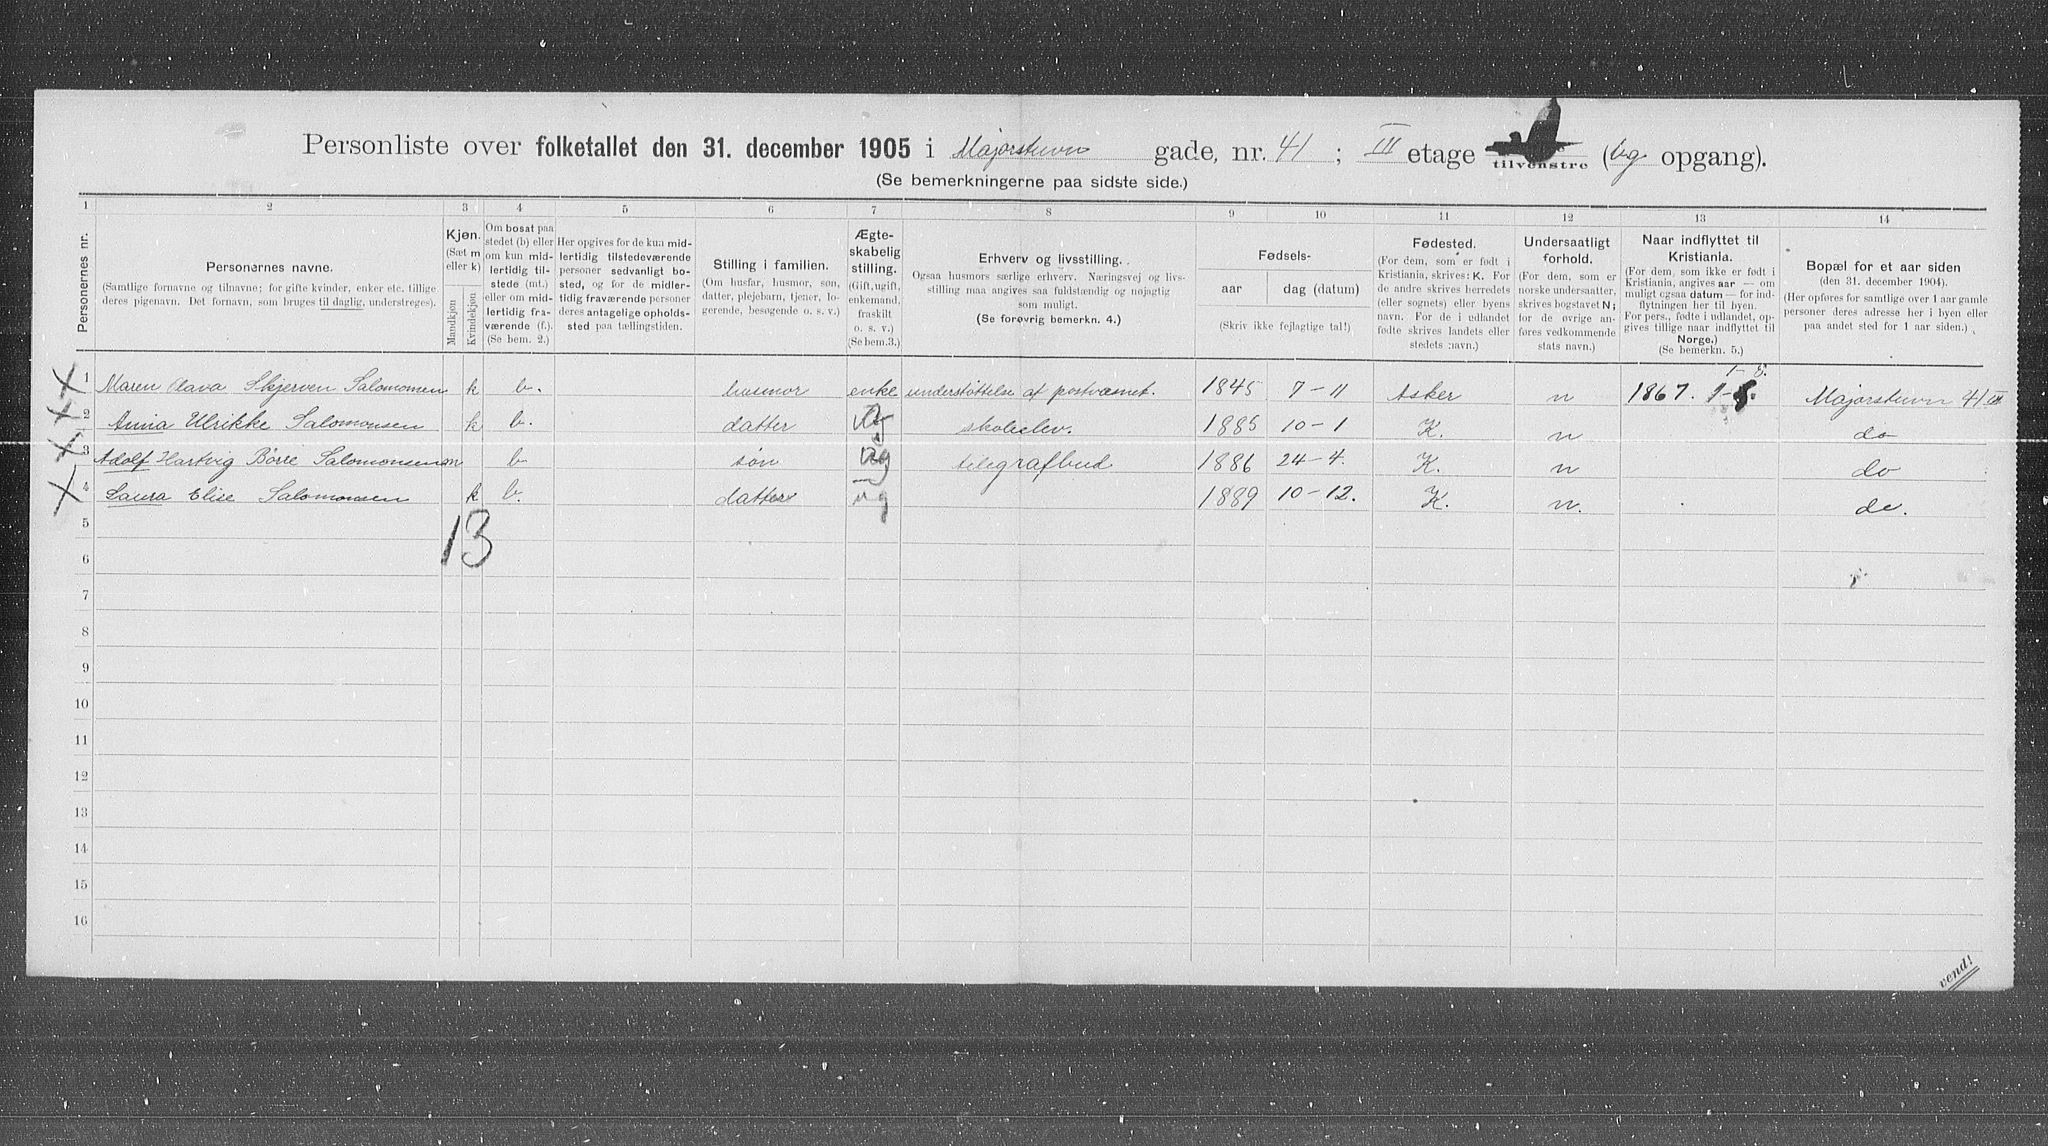 Personliste over folketallet den 31. december 1905 i Majorstuvn gade, nr. 41 ; III etage tilvenstre (bg opgang).
(Se bemerkningerne paa sidste side.)
1 2 3 4 5 6 7 8 9 10 11 12 13 14
Personernes nr.
Personernes navne.
(Samtlige fornavne og tilnavne; for gifte kvinder, enker etc. tillige deres pigenavn. Det fornavn, som bruges til daglig, understreges).
Kjøn.
(Sæt m eller k)
Mandkjøn
Kvindekjøn
Om bosat paa stedet (b) eller om kun midlertidig tilstede (mt.) eller om midlertidig fraværende (f.).
(Se bem. 2.)
Her opgives for de kun midlertidig tilstedeværende personer sedvanligt bosted, og for de midlertidig fraværende personer deres antagelige opholdssted paa tællingstiden.
Stilling i familien.
(Om husfar, husmor, søn, datter, plejebarn, tjener, logerende, besøgende o. s. v.)
Ægteskabelig stilling.
(Gift, ugift, enkemand, fraskilt o. s. v.)
(Se bem.3.)
Erhverv og livsstilling.
Ogsaa husmors særlige erhverv. Næringsvej og livsstilling maa angives saa fuldstændig og nøjagtig som muligt.
(Se forøvrig bemerkn. 4.)
Fødsels-
aar
dag (datum)
(Skriv ikke fejlagtige tal!)
Fødested.
(For dem, som er født i Kristiania, skrives: K. For de andre skrives herredets (eller sognets) eller byens navn. For de i udlandet fødte skrives landets eller stedets navn.)
Undersaatligt forhold.
(For dem, som er norske undersaatter, skrives bogstavet N; for de øvrige anføres vedkommende stats navn.)
Naar indflyttet til Kristiania.
(For dem, som ikke er født i Kristiania, angives aar — om muligt ogsaa datum — for indflytningen her til byen. For pers., fødte i udlandet, opgives tillige naar indflyttet til Norge.)
(Se bemerkn. 5.)
Bopæl for et aar siden
(den 31. december 1904).
(Her opføres for samtlige over 1 aar gamle personer deres adresse her i byen eller paa andet sted for 1 aar siden.)
1 Maren Skjerven Salomonsen k b. husmor enke understøttelse af postvæsnet. 1845 7-11 Asker n 1867. 1-8. Majorstuvn 41 III
2 Anna Ulrikke Salomonsen k b. datter skoleelev. 1885 10-1 K. n do
3 Adolf Hartvig Børre Salomonsen m b søn ug telegrafbud 1886 24-4. K. n do
4 Laura Elise Salomonsen k b. datter ug 1889 10-12. K. n. do.
5
13
6
7
8
9
10
11
12
13
14
15
16
vend!